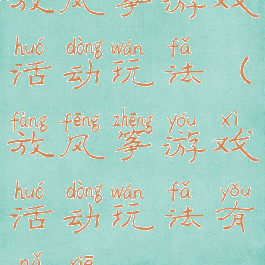 放风筝游戏
huó dòng wán fǎ
活动玩法(
fàng fēng zhēng yóu xì
放风筝游戏
huó dòng wán fǎ yǒu
活动玩法有
nǎ xiē